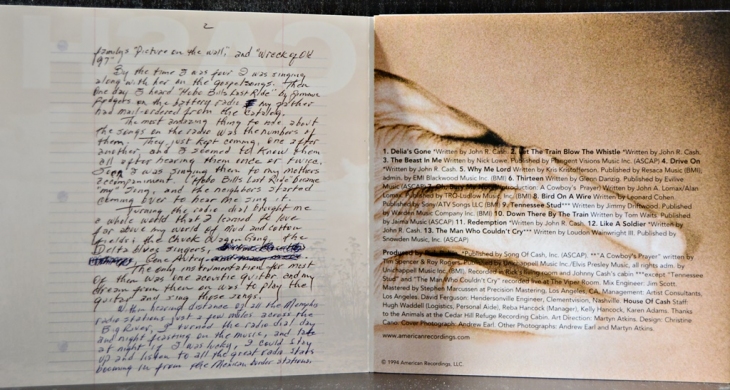 2
family's Picture on the wall", and "Wreck of Old
97"
By the time I was four I was singing
along with her on the gospel songs. Then
one day I heard "Hobo Bill's Last Ride" by Jimmie
Rodgers on the battery radio my father
had mail-ordered from the catalog.
The most amazing thing to me about
the songs on the radio was the numbers of
them. They just kept coming one after
another, and I seemed to know them
all after hearing them once or twice.
Soon I was singing them to my mothers
accompaniment. "Hobo Bills Last Ride" became
"my" song, and the neighbors started
coming over to hear me sing it.
Turning the radio dial brought me
a whole world that I found to love
far above my world of mud and cotton
fields: the Chuck Wagon Gang, the
Delta blues singers,
Gene Autry
The only instrumentation for most
of them was one acoustic guitar and my
dream from then on was to play the
guitar and sing those songs.
Within hearing distance of all the Memphis
radio stations just a few miles across the
Big River, I turned the radio dial day
and night feasting on the music, and late
at night if I was lucky, I could stay
up and listen to all the great radio stats
booming in from the Mexican border stations.
CASH
1. Delia's Gone *Written by John R. Cash. 2. Let The Train Blow The Whistle *Written by John R. Cash.
3. The Beast In Me Written by Nick Lowe. Published by Plangent Visions Music Inc. (ASCAP) 4. Drive On
*Written by John R. Cash. 5. Why Me Lord Written by Kris Kristofferson. Published by Resaca Music (BMI),
admin. by EMI Blackwood Music Inc. (BMI) 6. Thirteen Written by Glenn Danzig. Published by Evilive
Music (ASCAP) Introduction: A Cowboy's Prayer Written by John A. Lomax/Alan
Lomax. Published by TRO-Ludlow Music Inc. (BMI) 8. Bird On A Wire Written by Leonard Cohen.
Published by Sony/ATV Songs LLC (BMI) 9. Tennessee Stud*** Written by Jimmy Driftwood. Published by
Warden Music Company Inc. (BMI) 10. Down There By The Train Written by Tom Waits. Published by
Jalma Music (ASCAP) 11. Redemption *Written by John R. Cash. 12. Like A Soldier *Written by
John R. Cash. 13. The Man Who Couldn't Cry*** Written by Loudon Wainwright III. Published by
Snowden Music, Inc. (ASCAP)
Produced by *Published by Song Of Cash, Inc. (ASCAP). **"A Cowboy's Prayer" written by
Tim Spencer & Roy Rogers. Music Inc./Elvis Presley Music, all rights adm. by
Unichappell Music Inc. (BMI). Recorded in Rick's livingroom and Johnny Cash's cabin ***except, "Tennessee
Stud" and "The Man Who Couldn't Cry" recorded live at The Viper Room. Mix Engineer: Jim Scott.
Mastered by Stephen Marcussen at Precision Mastering, Los Angeles, CA. Management: Artist Consultants,
Los Angeles. David Ferguson: Hendersonville Engineer, Clementvision, Nashville. House Of Cash Staff:
Hugh Waddell (Logistics, Personal Aide), Reba Hancock (Manager), Kelly Hancock, Karen Adams. Thanks
to the Animals at the Cedar Hill Refuge Recording Cabin. Art Direction: Martyn Atkins. Design: Christine
Cano. Cover Photograph: Andrew Earl. Other Photographs: Andrew Earl and Martyn Atkins.
www.americanrecordings.com
© 1994 American Recordings, LLC.